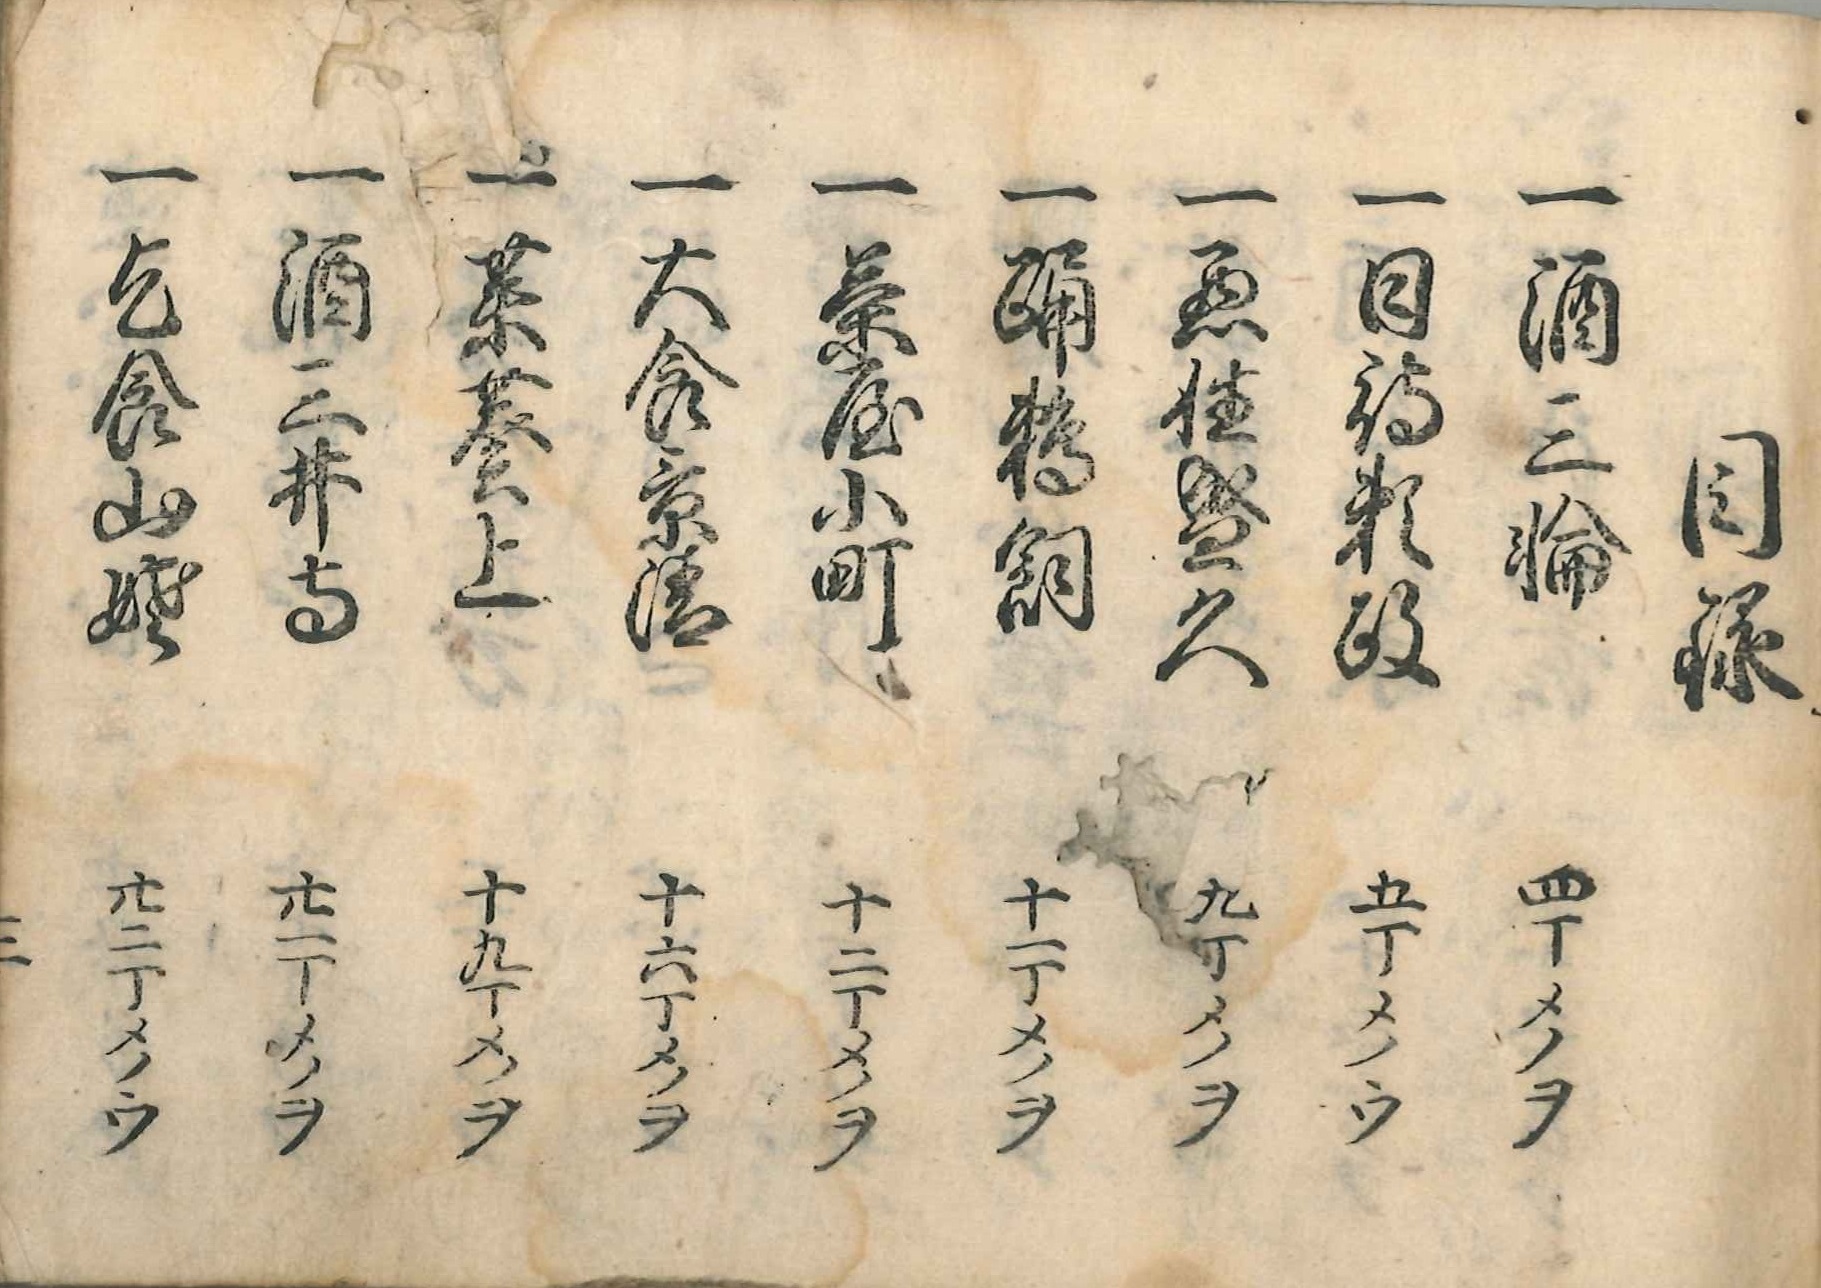 目録
一 酒三輪 四丁メノヲ
一 目薬頼政 五丁メノウ
一 悪性盛久 九丁メノヲ
一 踊鵜飼 十一丁メノヲ
一 茶屋小町 十二丁メノヲ
一 大食景清 十六丁メノヲ
一 茶葵上 十九丁メノヲ
一 酒三井寺 廿一丁メノヲ
一 乞食山姥 廿二丁メノウ
三